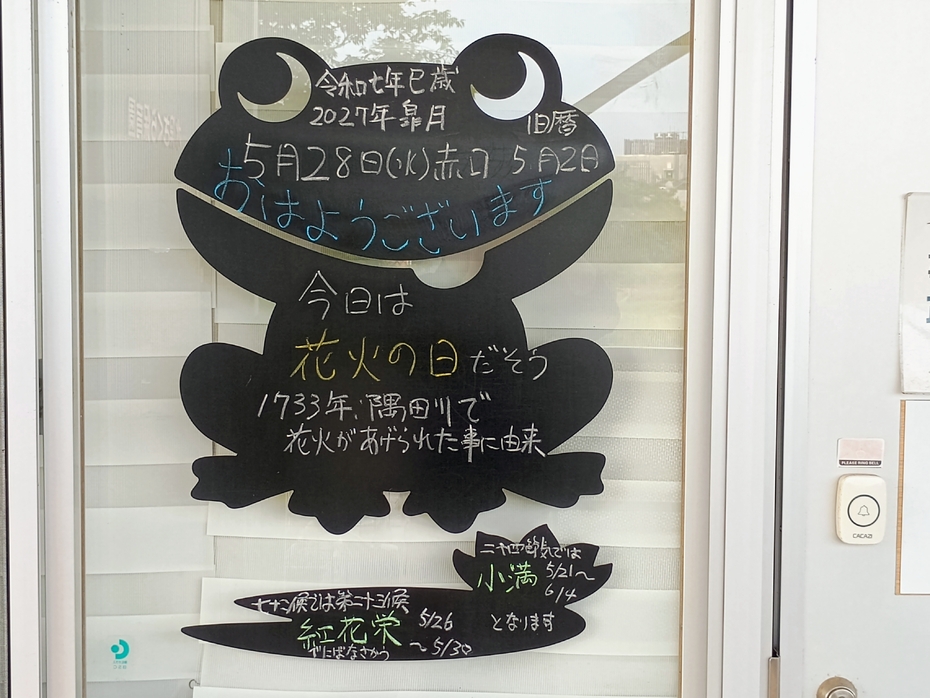 令和七年巳歳
2027年皐月
旧暦
5月28日(水)赤口 5月2日
おはようございます
今日は
花火の日だそう
1733年、隅田川で
花火があげられた事に由来
二十四節気では
小満 5/21〜
6/4
となります
七十二候では第二十三候
紅花栄 5/26
〜5/30
べにばなさかう
PLEASE RING BELL
CACAZI